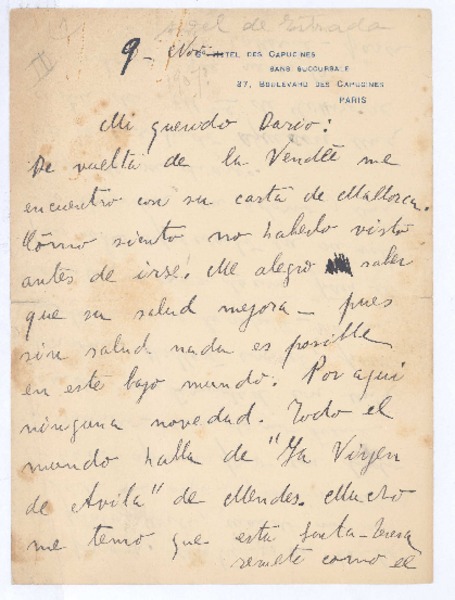 Angel de Estrada
II
9 - Nov.
HOTEL DES CAPUCINES
SANS SUCCURSALE
37, BOULEVARD DES CAPUCINES
PARIS
Mi querido Dario:
De vuelta de la Vendée me
encuentro con su carta de Mallorca.
Cómo siento no haberlo visto
antes de irse. Me alegro saber
que su salud mejora - pues
sin salud nada es posible
en este bajo mundo. Por aquí
ninguna novedad. Todo el
mundo habla de "La Virgen
de Avila" de Mendes. Mucho
me temo que esta Santa-Teresa
reviente como el